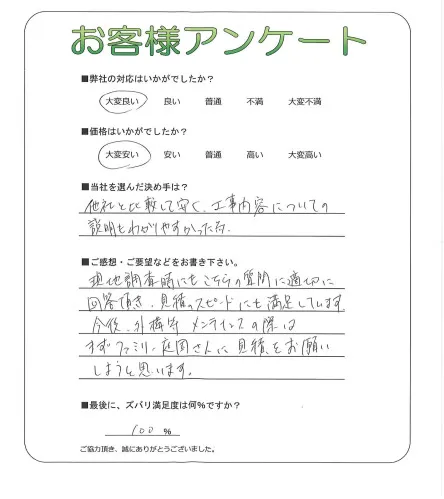 お客様アンケート
■弊社の対応はいかがでしたか？
大変良い 良い 普通 不満 大変不満
■価格はいかがでしたか？
大変安い 安い 普通 高い 大変高い
■当社を選んだ決め手は？
他社と比較して安く、工事内容についての
説明もわかりやすかった為。
■ご感想・ご要望などをお書き下さい。
現地調査時にもこちらの質問に適切に
回答頂き、見積のスピードにも満足しています
今後、外構等メンテナンスの際は
まずファミリー庭園さんに見積をお願い
しようと思います。
■最後に、ズバリ満足度は何％ですか？
100 %
ご協力頂き、誠にありがとうございました。